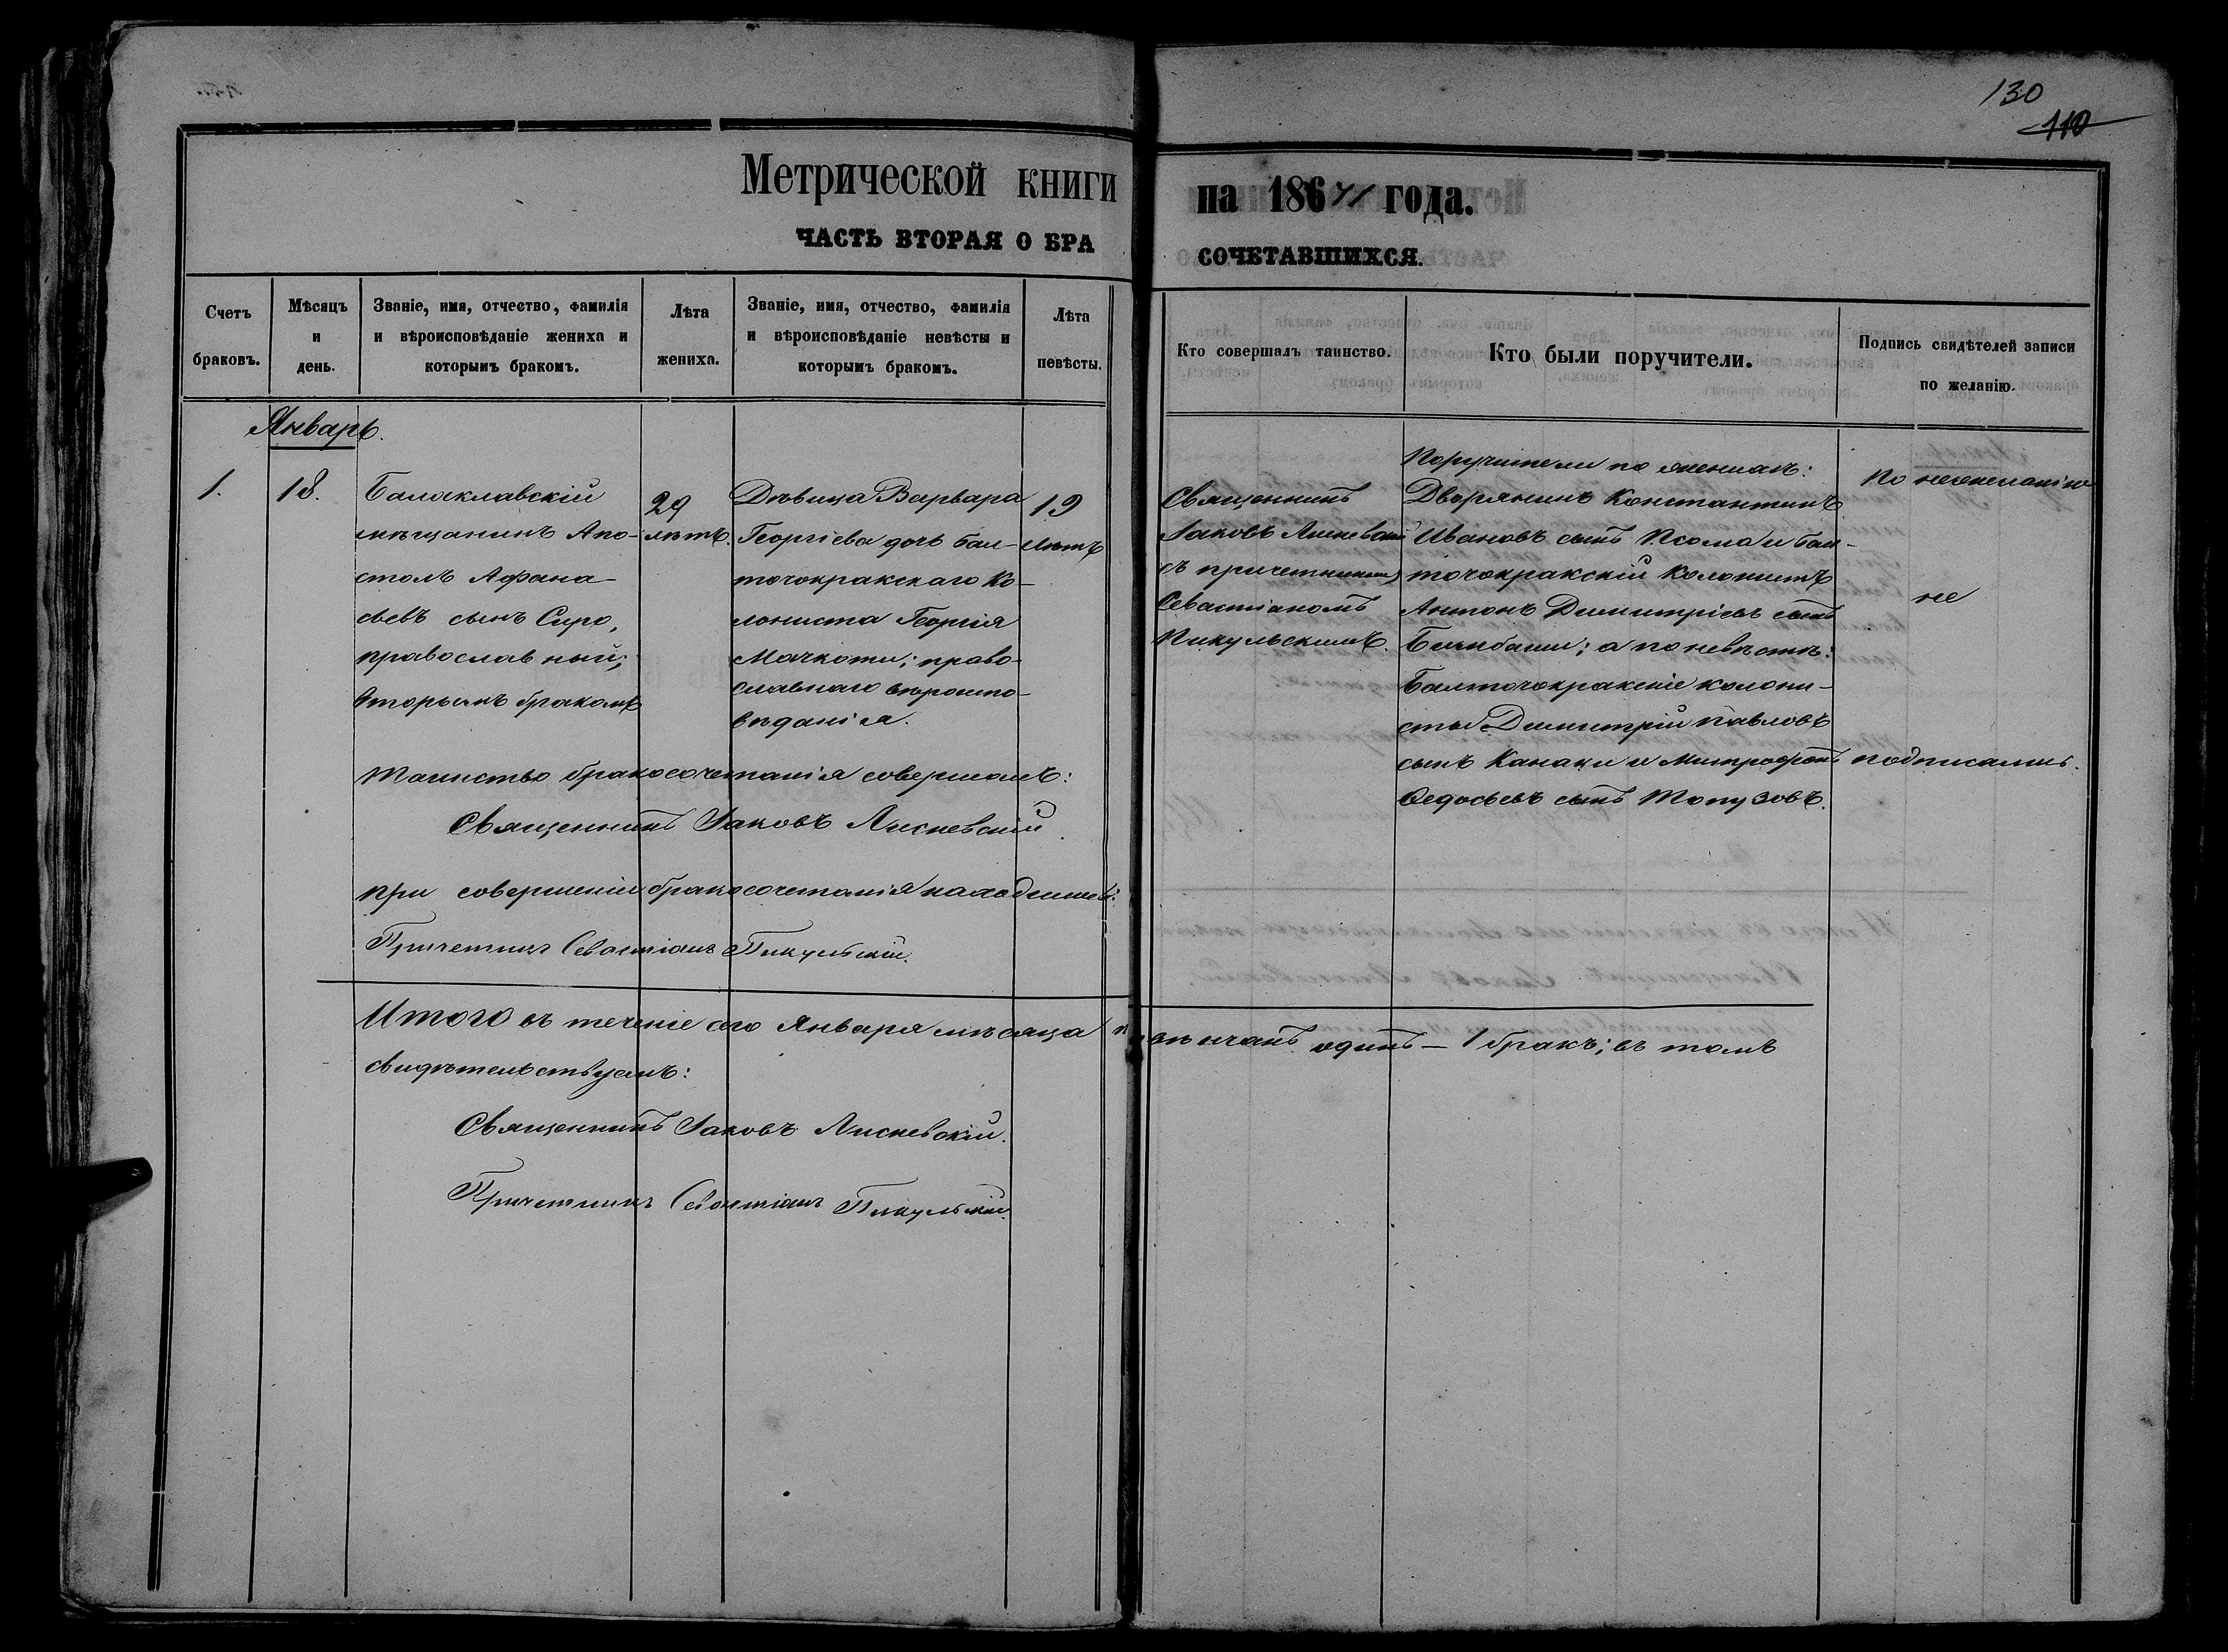 130
110
Метрической книги на 1871 года.
ЧАСТЬ ВТОРАЯ О БРАСОЧЕТАВШИХСЯ.
Счетъ браковъ.
Мѣсяцъ и день.
Званіе, имя, отчество, фамилія
и вѣроисповѣданіе жениха и
которымъ бракомъ.
Лѣта жениха.
Званіе, имя, отчество, фамилія
и вѣроисповѣданіе невѣсты и
которымъ бракомъ.
Лѣта невѣсты.
Кто совершалъ таинство.
Кто были поручители.
Подпись свидѣтелей записи
по желанію.
Январь.
1.
18.
Балаклавскій
мѣщанинъ Апо-
столъ Афана-
сьевъ сынъ Сиро,
православный;
вторымъ бракомъ
29
лѣтъ.
Дѣвица Варвара
Георгіева дочь бал-
точокракскаго ко-
лониста Георгія
Мачкоти; право-
славнаго вѣроиспо-
вѣданія.
19
лѣтъ
Священникъ
Іаковъ Лисневскій
съ причетникомъ
Севастіаномъ
Пикульскимъ.
Поручители по женихѣ:
Дворянинъ Константинъ
Ивановъ сынъ Псома и бал-
точокракскій колонистъ
Антонъ Димитріевъ сынъ
Бинбаши; а по невѣстѣ:
Балточокракскіе колони-
сты Димитрій Павловъ
сынъ Канаки и Митрофанъ
Ѳедосьевъ сынъ Топузовъ.
По нежеланію
не
подписались.
Таинство бракосочетанія совершалъ:
Священникъ Іаковъ Лисневскій.
При совершеніи бракосочетанія находились:
Причетникъ Севастіанъ Пикульскій.
Итого въ теченіе сего Января мѣсяца повѣнчанъ одинъ – 1 бракъ; въ томъ
свидѣтельствуемъ:
Священникъ Іаковъ Лисневскій.
Причетникъ Севастіанъ Пикульскій.